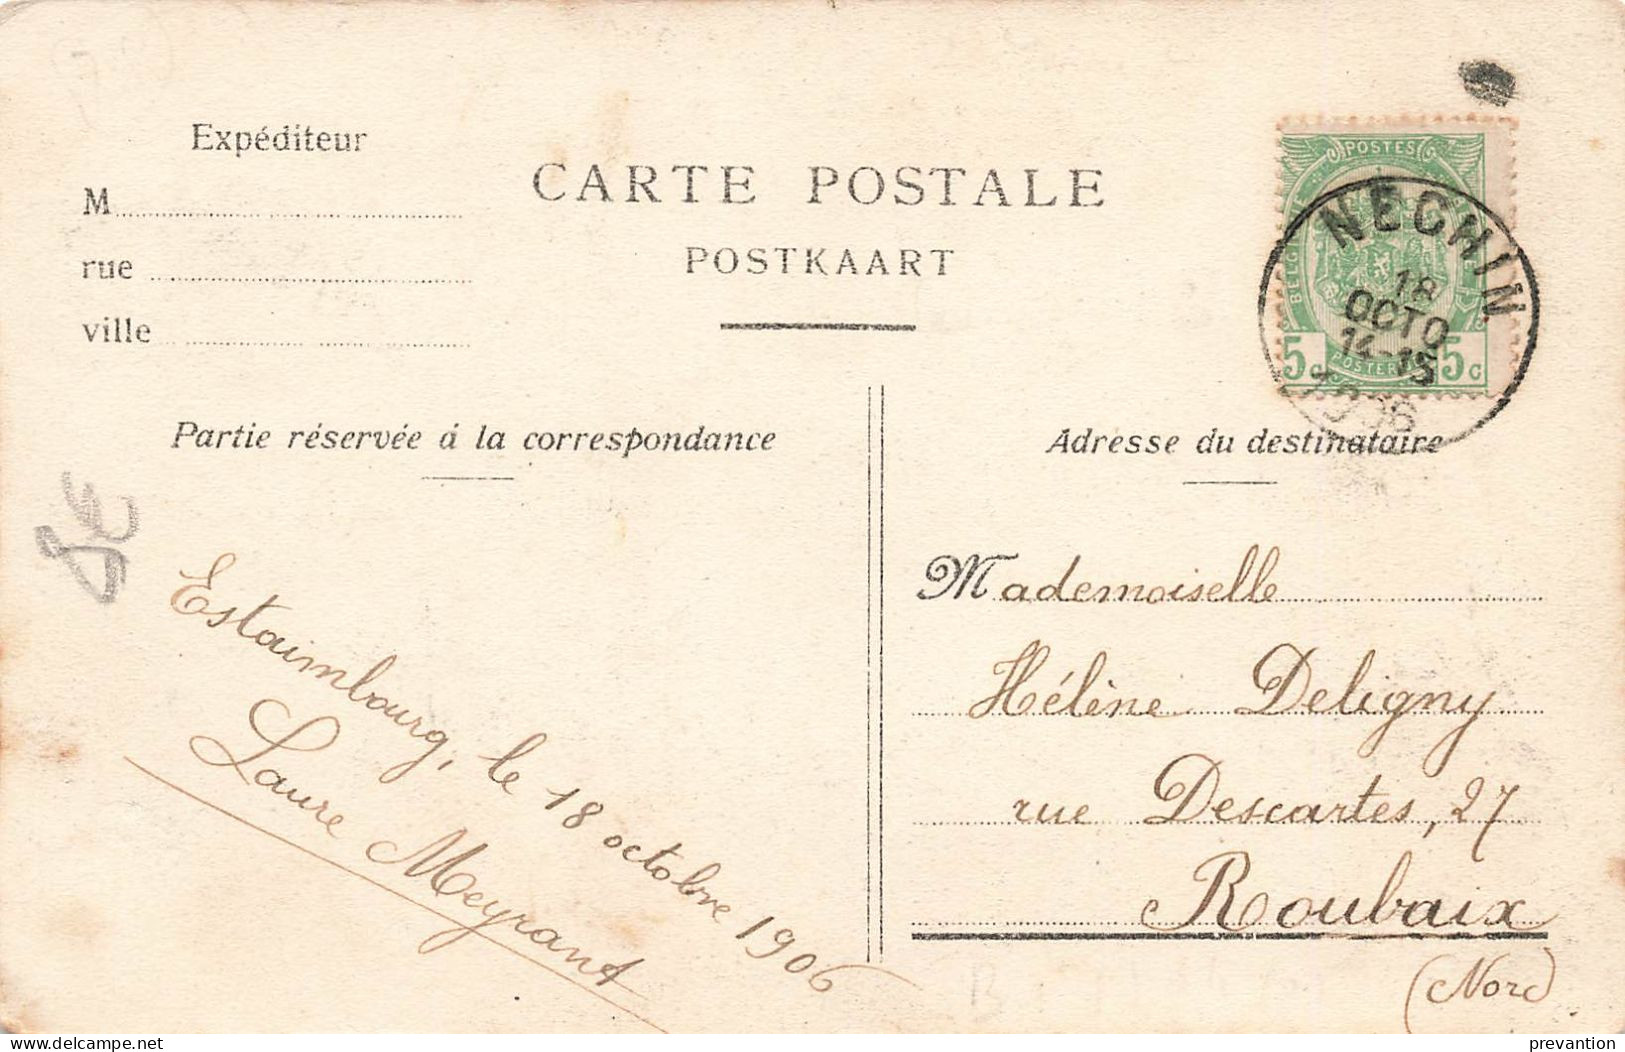 Expéditeur
M
rue
ville
CARTE POSTALE
POSTKAART
POSTES
NECHIN
18
OCTO
14-15
1906
5 c 5 c
Partie réservée á la correspondance
Adresse du destinataire
Estaimbourg, le 18 octobre 1906
Laure Meyrant
Mademoiselle
Hélène Deligny
rue Descartes, 27
Roubaix
(Nord)
delcampe.net
prevantion